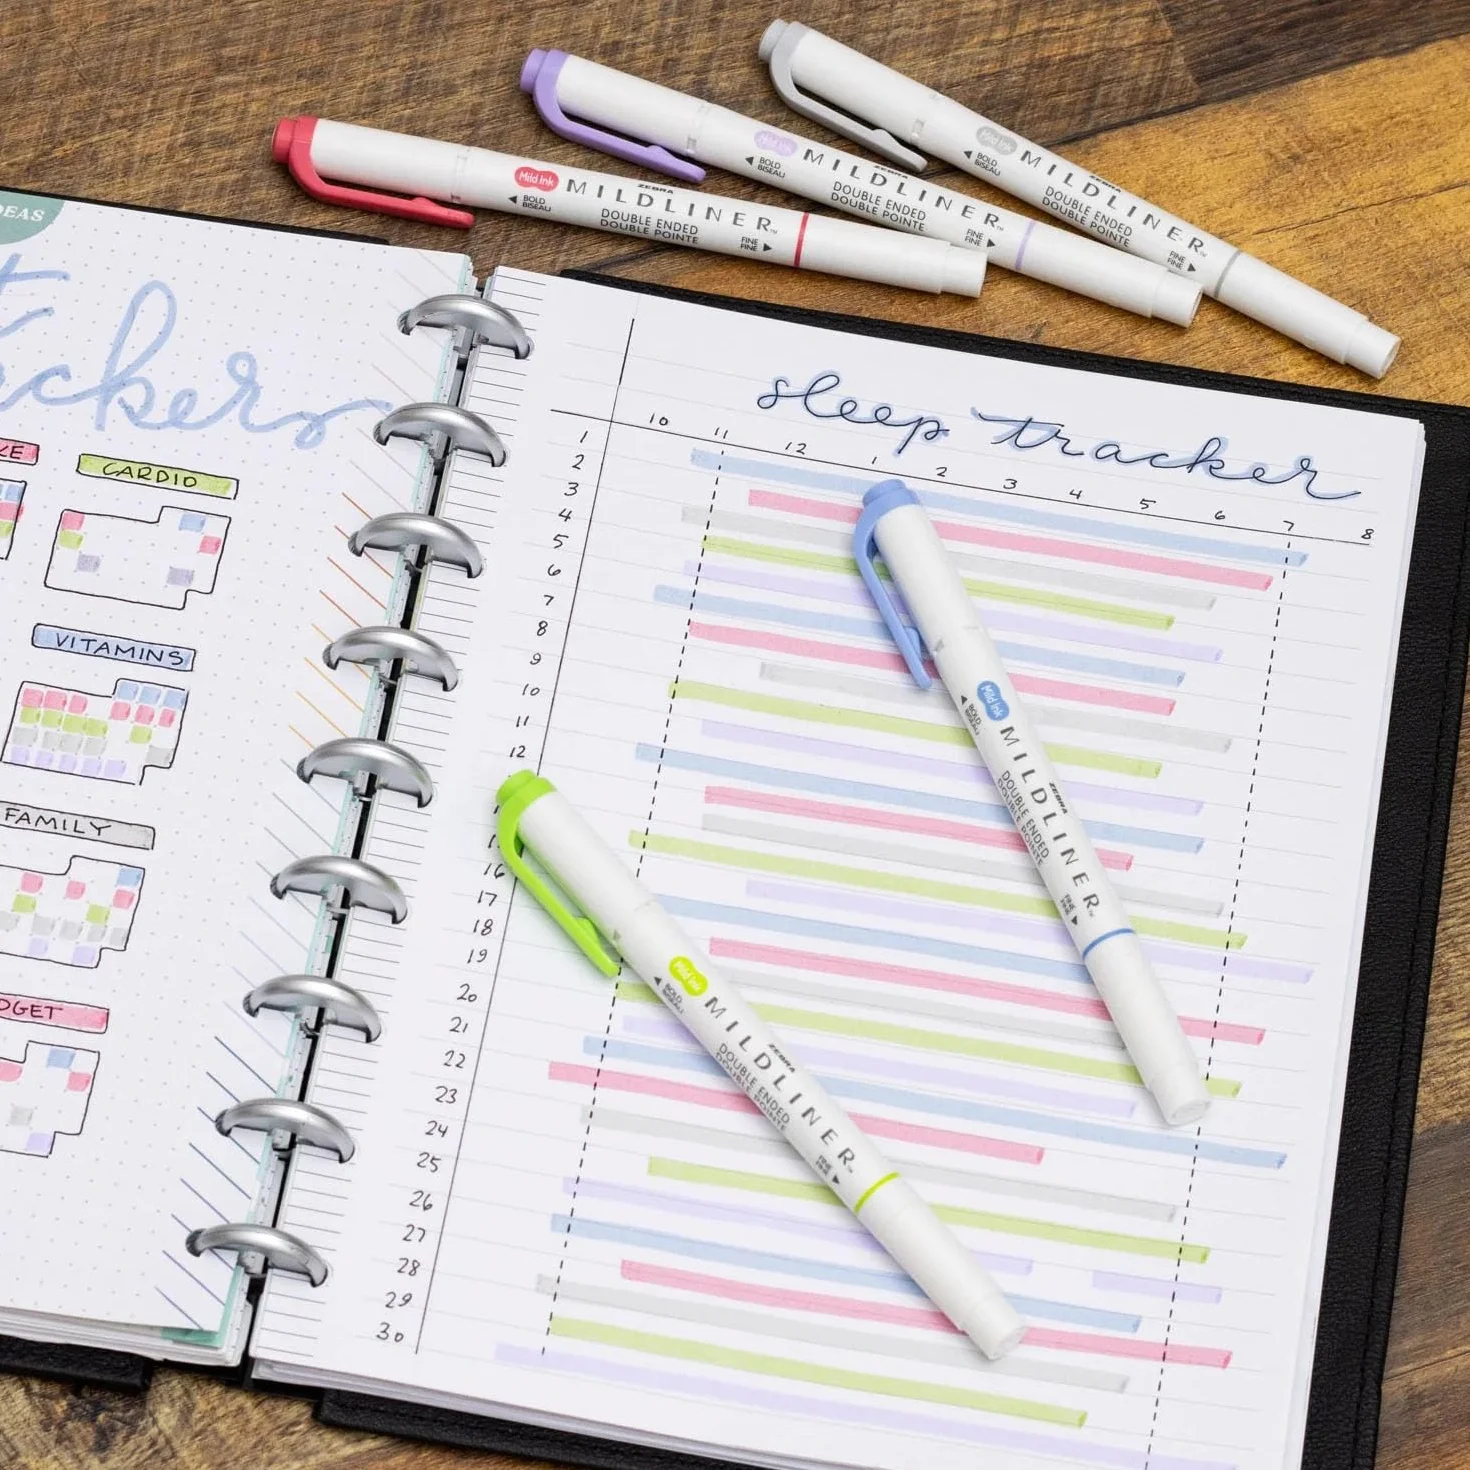 Mild Ink
BOLD
BISEAU
ZEBRA
MILDLINER™
DOUBLE ENDED
DOUBLE POINTE
FINE
FINE
Mild Ink
BOLD
BISEAU
ZEBRA
MILDLINER™
DOUBLE ENDED
DOUBLE POINTE
FINE
FINE
Mild Ink
BOLD
BISEAU
ZEBRA
MILDLINER™
DOUBLE ENDED
DOUBLE POINTE
FINE
FINE
CARDIO
VITAMINS
FAMILY
sleep tracker
10 11 12 1 2 3 4 5 6 7 8
1
2
3
4
5
6
7
8
9
10
11
12
16
17
18
19
20
21
22
23
24
25
26
27
28
29
30
Mild Ink
BOLD
BISEAU
ZEBRA
MILDLINER™
DOUBLE ENDED
DOUBLE POINTE
FINE
FINE
Mild Ink
BOLD
BISEAU
ZEBRA
MILDLINER™
DOUBLE ENDED
DOUBLE POINTE
FINE
FINE